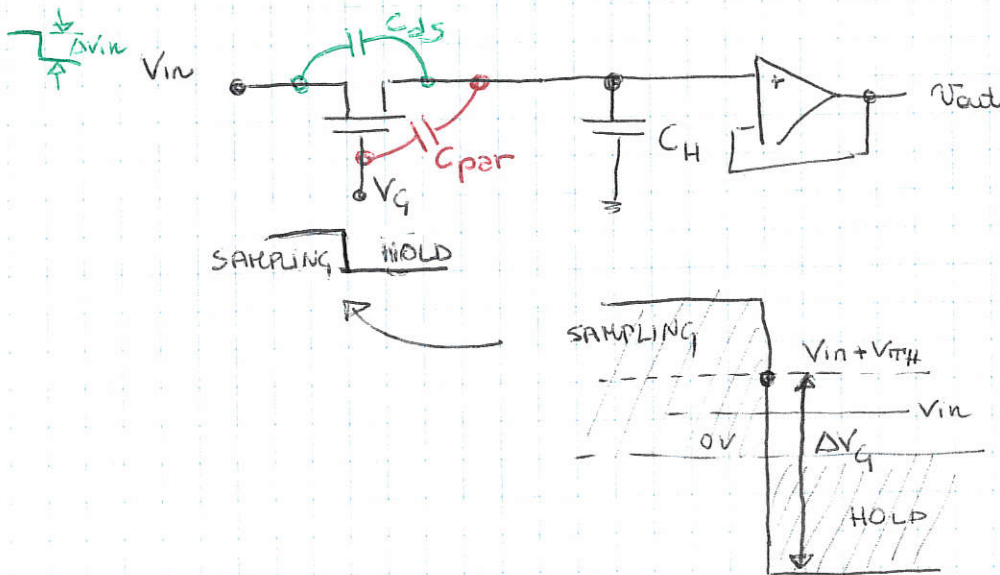 Cds
ΔVin
Vin
+
-
Vout
Cpar
CH
VG
SAMPLING HOLD
SAMPLING
Vin+VTH
Vin
0V
ΔVG
HOLD